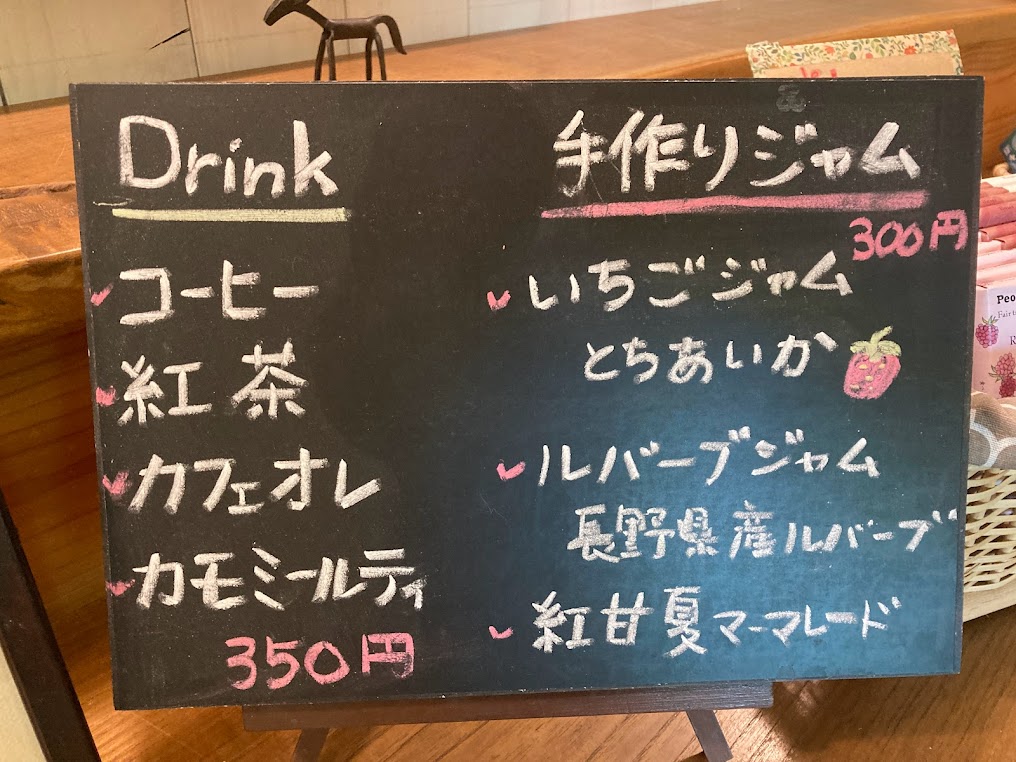 Drink
コーヒー
紅茶
カフェオレ
カモミールティ
350円
手作りジャム
300円
いちごジャム
とちあいか
ルバーブジャム
長野県産ルバーブ
紅甘夏マーマレード
Peo
Fair t
R